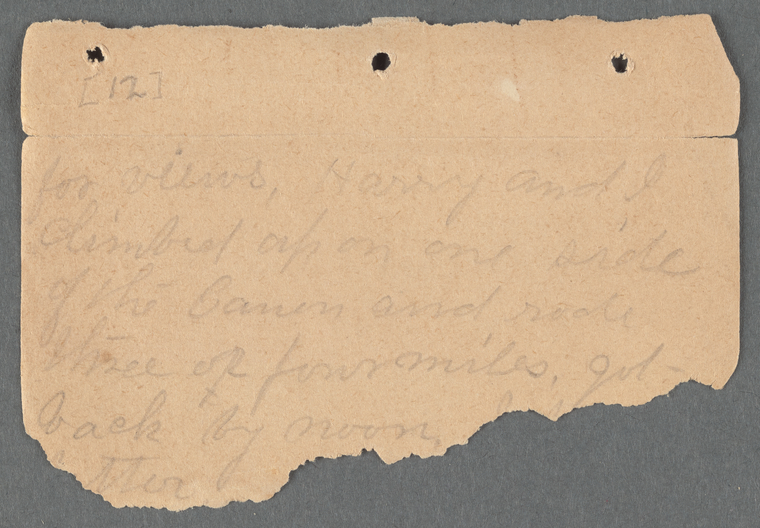 [12]
for views, Harry and I
climbed up on one side
of the Canon and rode
three or four miles, got
back by noon.